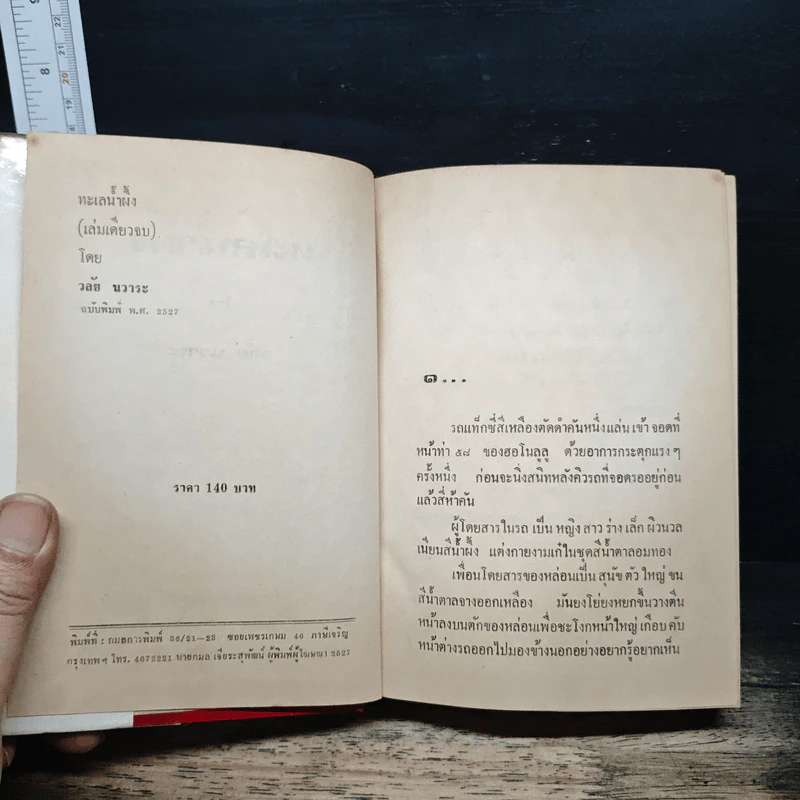 ทะเลน้ำผึ้ง
(เล่มเดียวจบ)
โดย
วลัย นวาระ
ฉบับพิมพ์ พ.ศ. 2527
ราคา 140 บาท
พิมพ์ที่ : กมลการพิมพ์ 36/21-23 ซอยเพชรเกษม 46 ภาษีเจริญ
กรุงเทพฯ โทร. 4672221 นายกมล เจียระสุพัฒน์ ผู้พิมพ์ผู้โฆษณา 2527
๑...
รถแท็กซี่สีเหลืองตัดดำคันหนึ่งแล่นเข้าจอดที่
หน้าท่า ๕๘ ของฮอโนลูลู ด้วยอาการกระตุกแรง ๆ
ครั้งหนึ่ง ก่อนจะนิ่งสนิทหลังคิวรถที่จอดรออยู่ก่อน
แล้วสี่ห้าคัน
ผู้โดยสารในรถเป็นหญิงสาวร่างเล็กผิวนวล
เนียนสีน้ำผึ้ง แต่งกายงามเก๋ในชุดสีน้ำตาลอมทอง
เพื่อนโดยสารของหล่อนเป็นสุนัขตัวใหญ่ขน
สีน้ำตาลจางออกเหลือง มันยงโย่ยงหยกขึ้นวางตีน
หน้าลงบนตักของหล่อนเพื่อชะโงกหน้าใหญ่เกือบคับ
หน้าต่างรถออกไปมองข้างนอกอย่างอยากรู้อยากเห็น
8
9
18
19
20
21
22